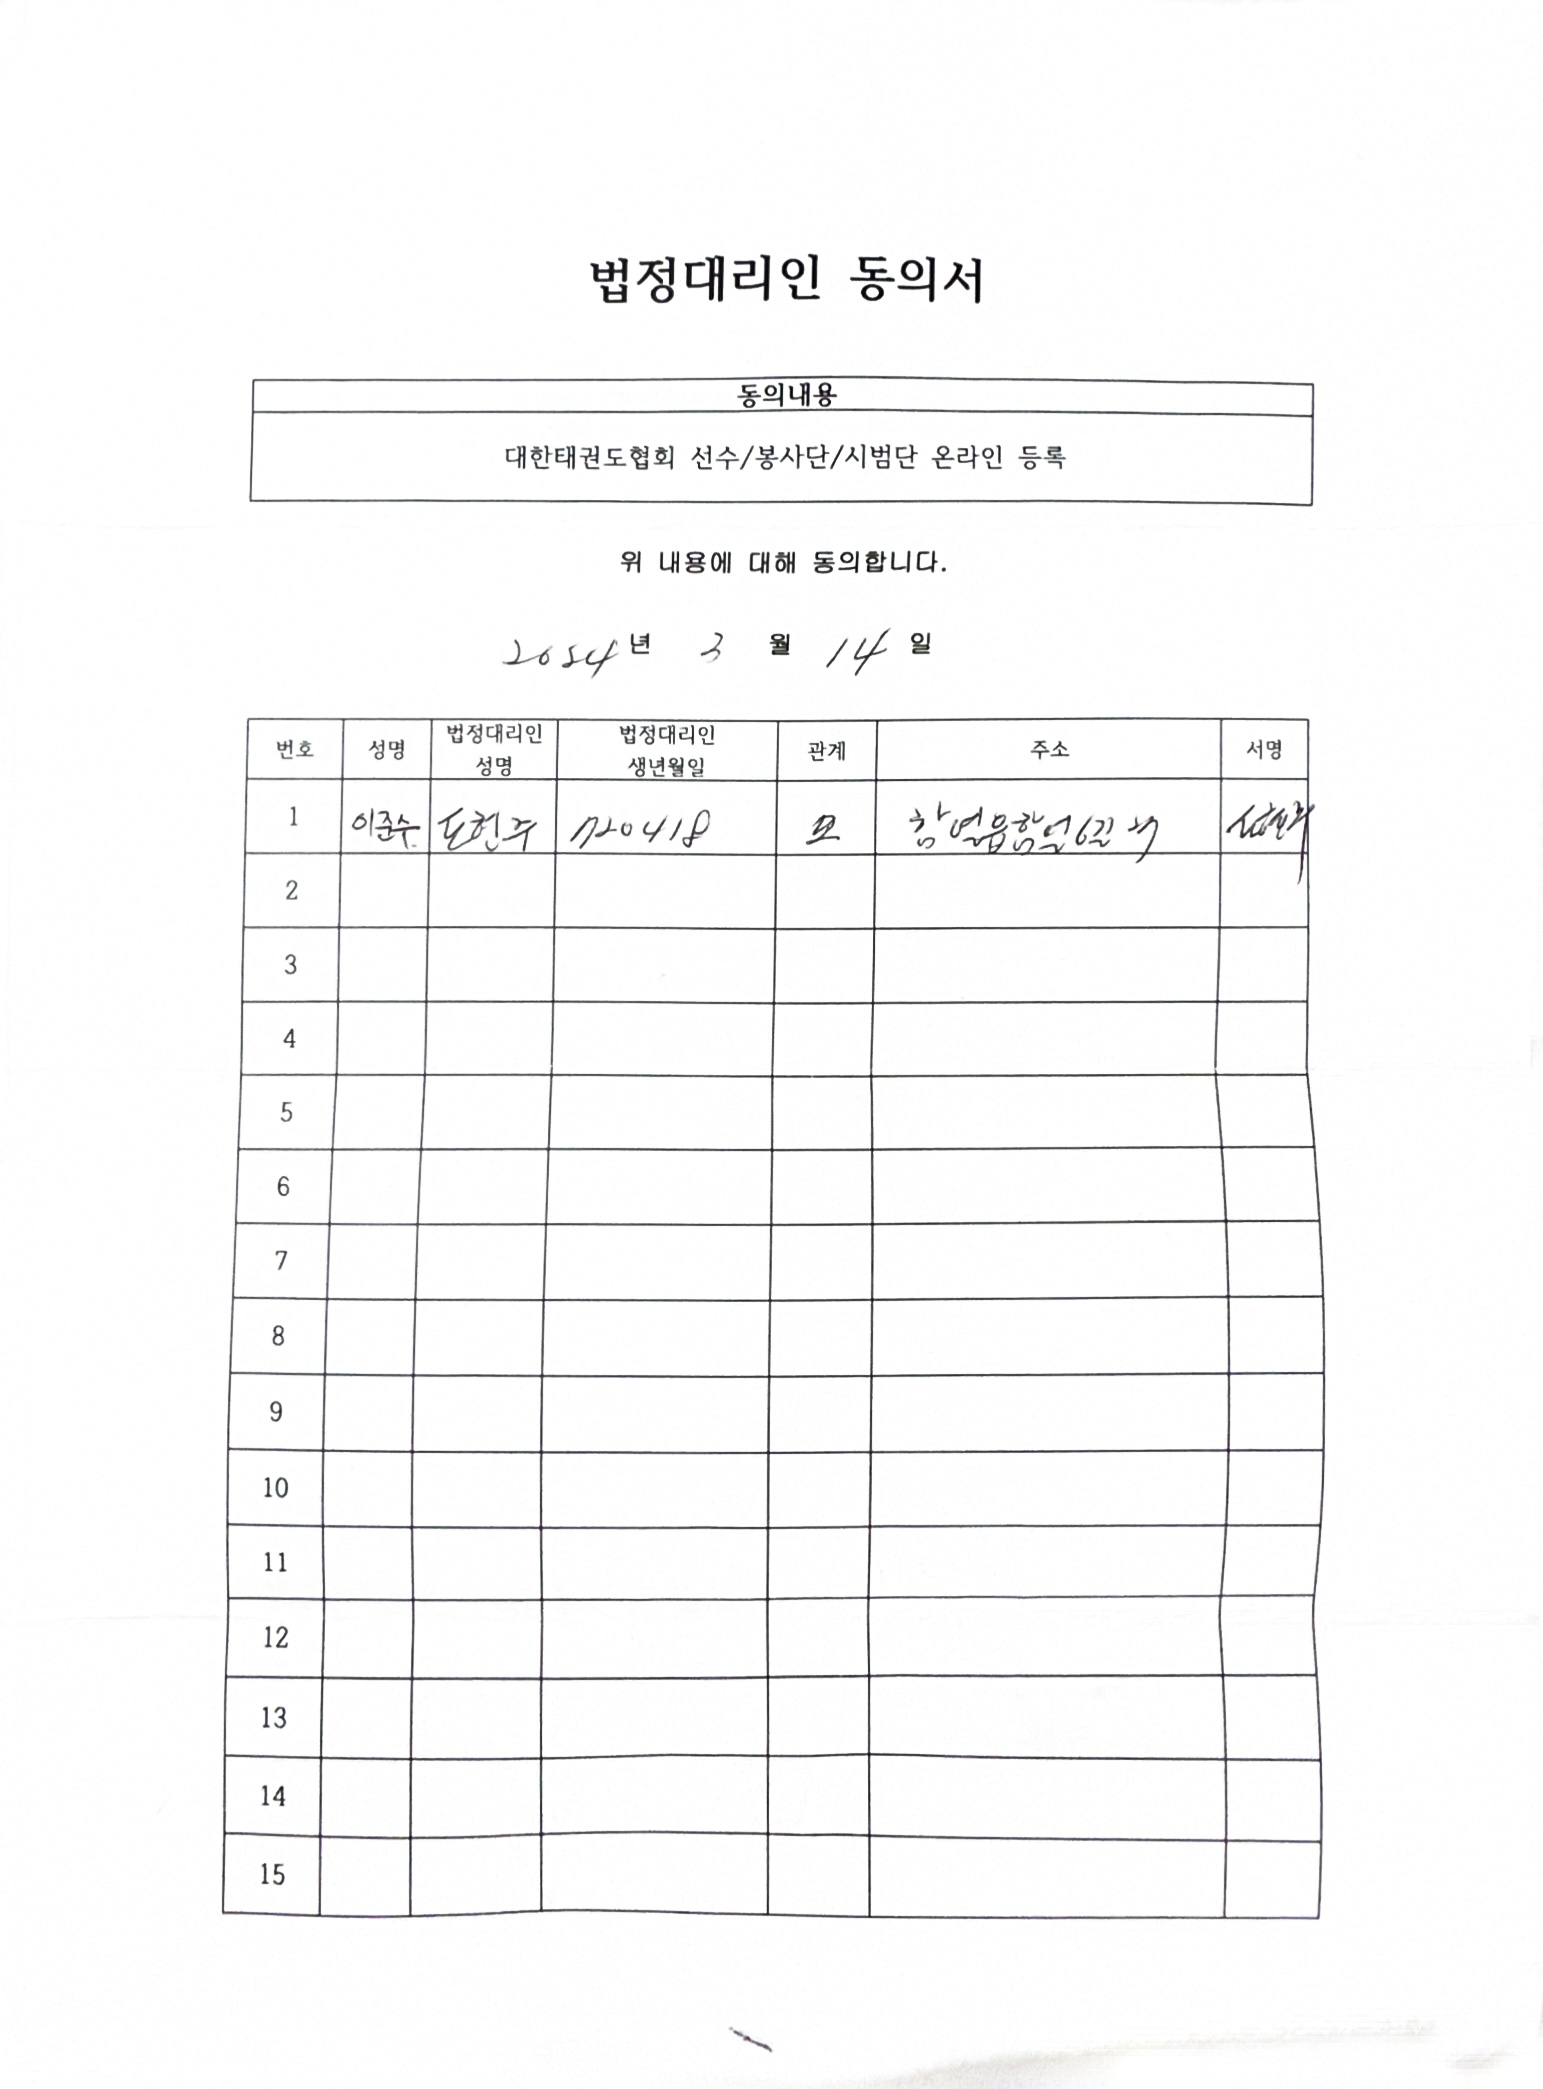 법정대리인 동의서
동의내용
대한태권도협회 선수/봉사단/시범단 온라인 등록
위 내용에 대해 동의합니다.
2024년 3 월 14 일
번호 성명 법정대리인 성명 법정대리인 생년월일 관계 주소 서명
1 이준수 도현주 720418 모 함열읍함열6길
2
3
4
5
6
7
8
9
10
11
12
13
14
15